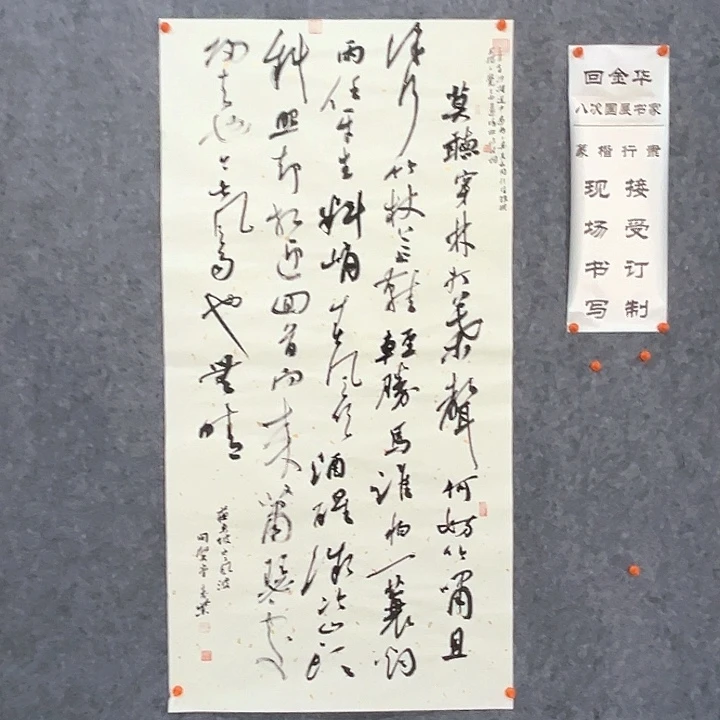 莫聽穿林打葉聲何妨吟嘯且
徐行竹杖芒鞋輕勝馬誰怕一蓑烟
雨任平生料峭春风吹酒醒微冷山头
斜照却相迎回首向来蕭瑟处
归去也无风雨也無晴
回金华
八次国展书家
篆楷行隶
现场书写
接受订制